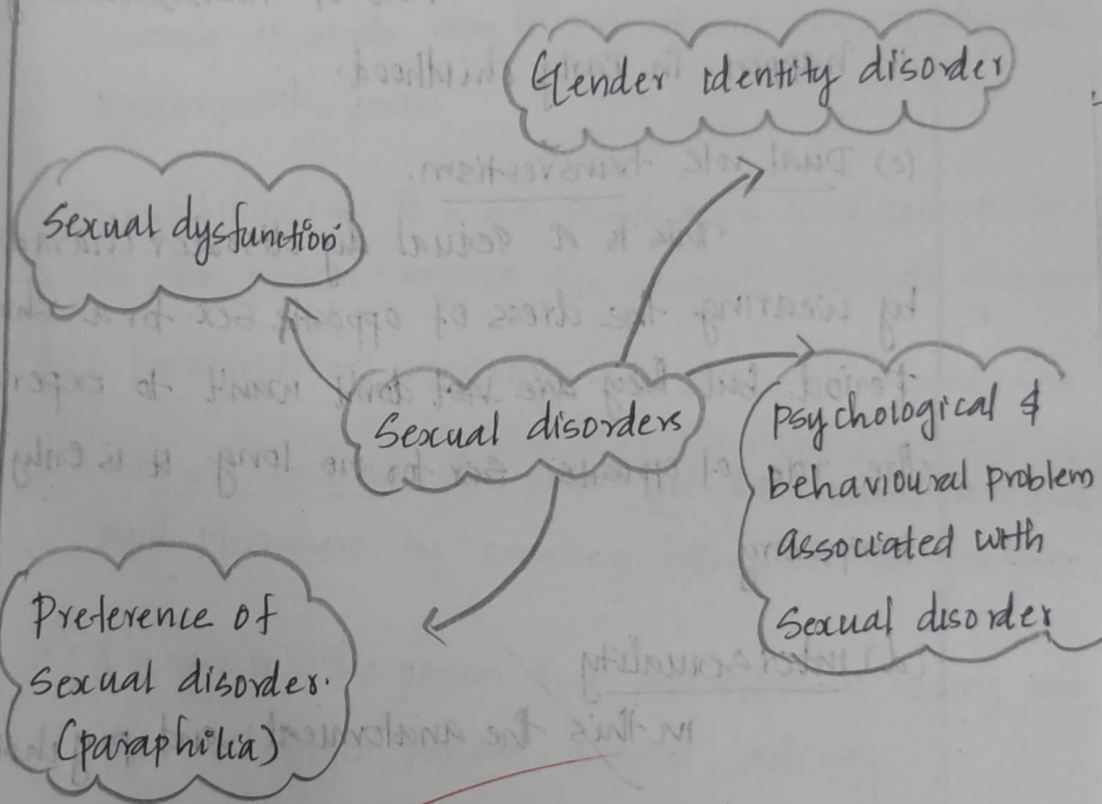 Gender identity disorder
Sexual dysfunction
Sexual disorders
Psychological &
behavioural problem
associated with
Sexual disorder
Preference of
Sexual disorder.
(paraphilia)